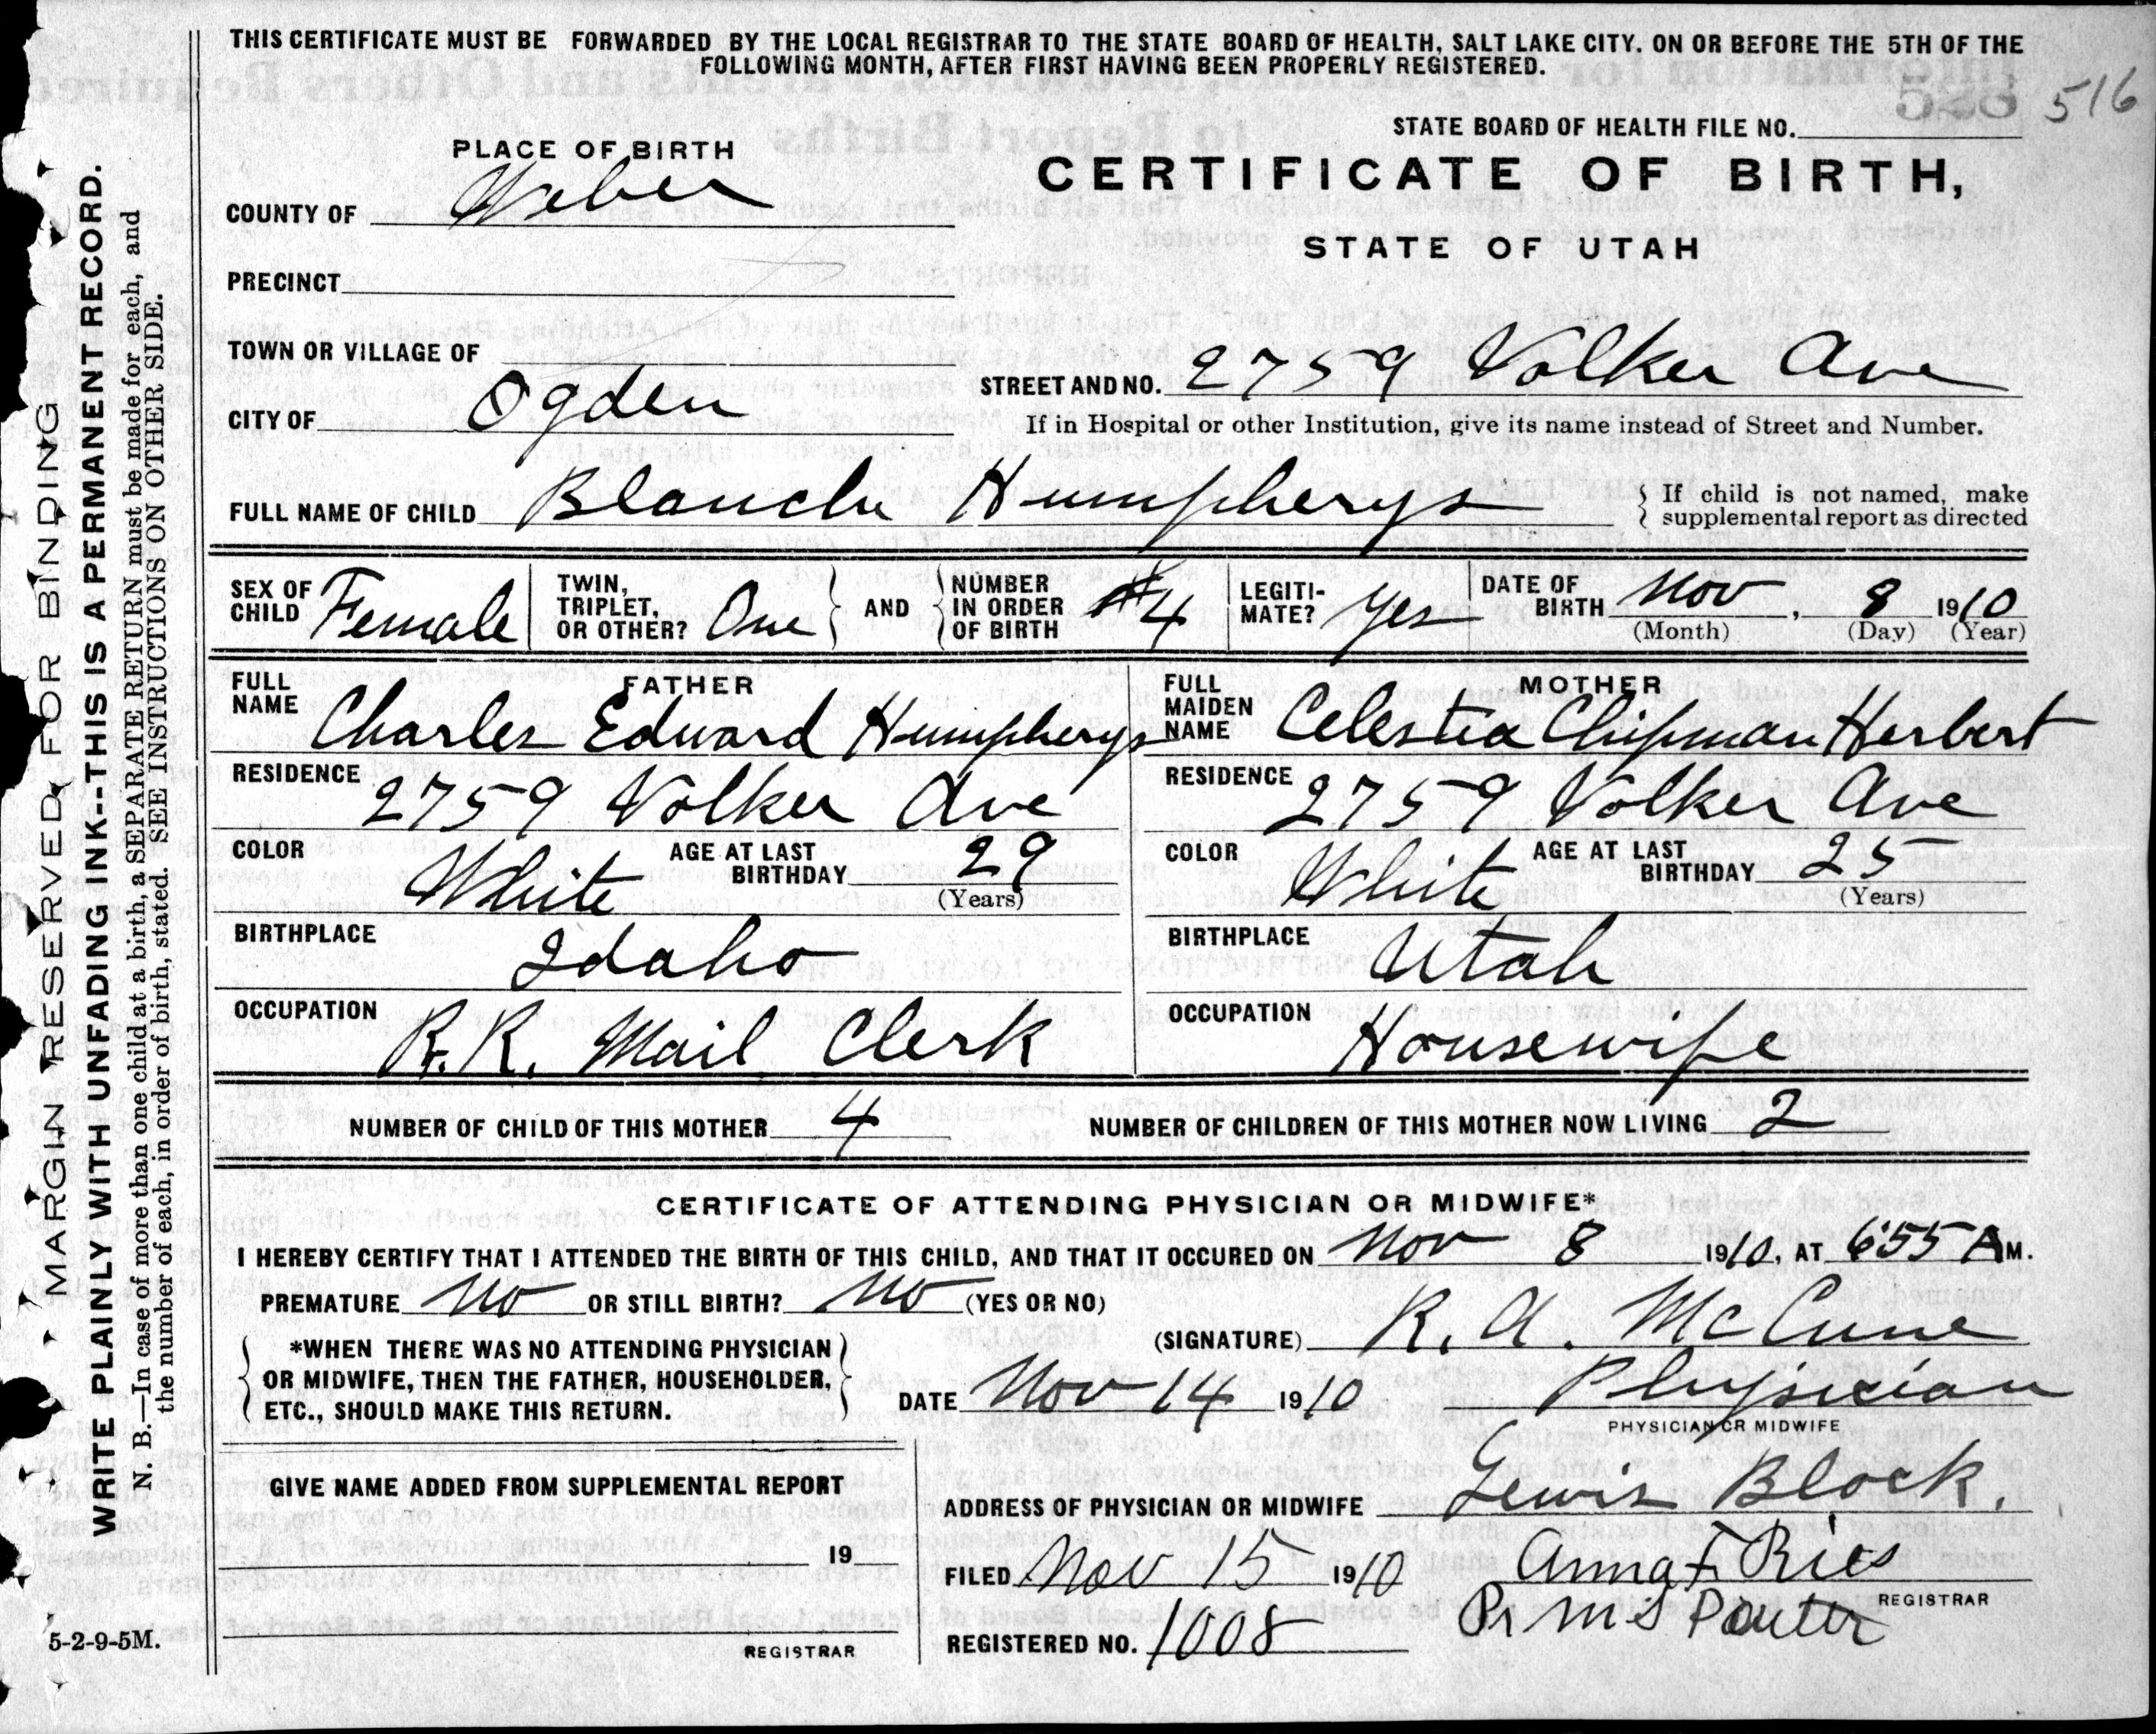 THIS CERTIFICATE MUST BE FORWARDED BY THE LOCAL REGISTRAR TO THE STATE BOARD OF HEALTH, SALT LAKE CITY. ON OR BEFORE THE 5TH OF THE
FOLLOWING MONTH, AFTER FIRST HAVING BEEN PROPERLY REGISTERED.
528 516
STATE BOARD OF HEALTH FILE NO.
PLACE OF BIRTH
CERTIFICATE OF BIRTH,
COUNTY OF Weber
STATE OF UTAH
PRECINCT
TOWN OR VILLAGE OF
STREET AND NO. 2759 Volker Ave
CITY OF Ogden
If in Hospital or other Institution, give its name instead of Street and Number.
FULL NAME OF CHILD Blanche Humpherys
If child is not named, make
supplemental report as directed
SEX OF CHILD Female
TWIN, TRIPLET, OR OTHER? One
AND
NUMBER IN ORDER OF BIRTH #4
LEGITI-MATE? Yes
DATE OF BIRTH Nov, 8 1910
(Month) (Day) (Year)
FATHER
FULL NAME Charles Edward Humpherys
RESIDENCE 2759 Volker Ave
COLOR White
AGE AT LAST BIRTHDAY 29
(Years)
BIRTHPLACE Idaho
OCCUPATION R.R. Mail Clerk
MOTHER
FULL MAIDEN NAME Celestia Chipman Herbert
RESIDENCE 2759 Volker Ave
COLOR White
AGE AT LAST BIRTHDAY 25
(Years)
BIRTHPLACE Utah
OCCUPATION Housewife
NUMBER OF CHILD OF THIS MOTHER 4
NUMBER OF CHILDREN OF THIS MOTHER NOW LIVING 2
CERTIFICATE OF ATTENDING PHYSICIAN OR MIDWIFE*
I HEREBY CERTIFY THAT I ATTENDED THE BIRTH OF THIS CHILD, AND THAT IT OCCURED ON Nov 8 1910, AT 6:55 A M.
PREMATURE No OR STILL BIRTH? No (YES OR NO)
*WHEN THERE WAS NO ATTENDING PHYSICIAN
OR MIDWIFE, THEN THE FATHER, HOUSEHOLDER,
ETC., SHOULD MAKE THIS RETURN.
(SIGNATURE) R. A. McCune
DATE Nov 14 1910
Physician
PHYSICIAN OR MIDWIFE
GIVE NAME ADDED FROM SUPPLEMENTAL REPORT
19
REGISTRAR
ADDRESS OF PHYSICIAN OR MIDWIFE Lewis Block.
FILED Nov 15 1910
Anna F Ries
REGISTRAR
REGISTERED NO. 1008
Pr M S Poulter
5-2-9-5M.
MARGIN RESERVED FOR BINDING
WRITE PLAINLY WITH UNFADING INK--THIS IS A PERMANENT RECORD.
N. B.—In case of more than one child at a birth, a SEPARATE RETURN must be made for each, and
the number of each, in order of birth, stated. SEE INSTRUCTIONS ON OTHER SIDE.